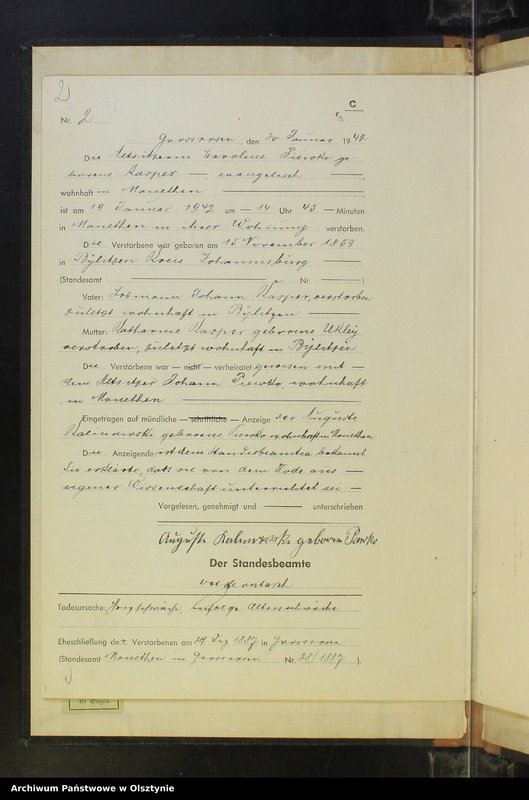 2
C
Nr. 2
Grossrosen, den 20 Januar 1942
Die Altsitzerin Caroline Piewko ge-
borene Kasper —, evangelisch —,
wohnhaft in Monethen —
ist am 19 Januar 1942 um — 14 Uhr 45 — Minuten
in Monethen in ihrer Wohnung verstorben.
Die Verstorbene war geboren am 15 November 1859
in Bylitzen Kreis Johannisburg —
(Standesamt — Nr. —)
Vater: Losmann Johann Kasper, verstorben
zuletzt wohnhaft in Bylitzen —
Mutter: Katharine Kasper geborene Ukley
verstorben, zuletzt wohnhaft in Bylitzen
Die Verstorbene war — nicht — verheiratet gewesen mit —
dem Altsitzer Johann Piewko, wohnhaft
in Monethen —
Eingetragen auf mündliche — schriftliche — Anzeige der Auguste
Kalinowski geborene Piewko wohnhaft in Monethen
Die Anzeigende ist dem Standesbeamten bekannt
Sie erklärte, dass sie von dem Tode aus —
eigener Wissenschaft unterrichtet sei —
Vorgelesen, genehmigt und — unterschrieben
Auguste Kalinowski geborene
Der Standesbeamte
Todesursache: Herzschwäche infolge Altersschwäche
Eheschließung der Verstorbenen am 27 Dez 1887 in Grossrosen
(Standesamt Monethen in Grossrosen Nr. 28/1887).
Archiwum Państwowe w Olsztynie